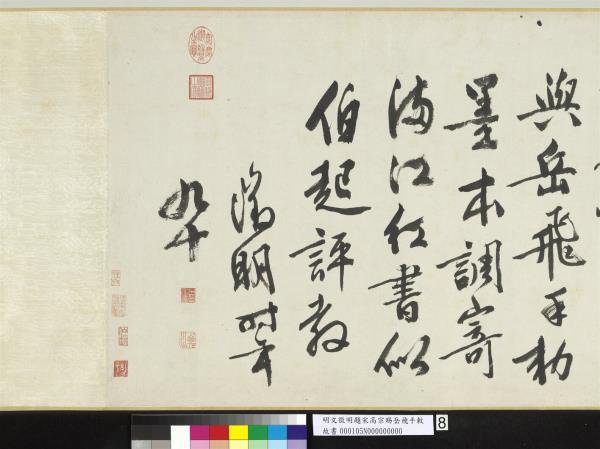 與岳飛手勅
墨本調寄
滿江紅書似
伯起評教
徵明時年
九十
明文徵明題宋高宗賜岳飛手敕
故書 000105N000000000
8